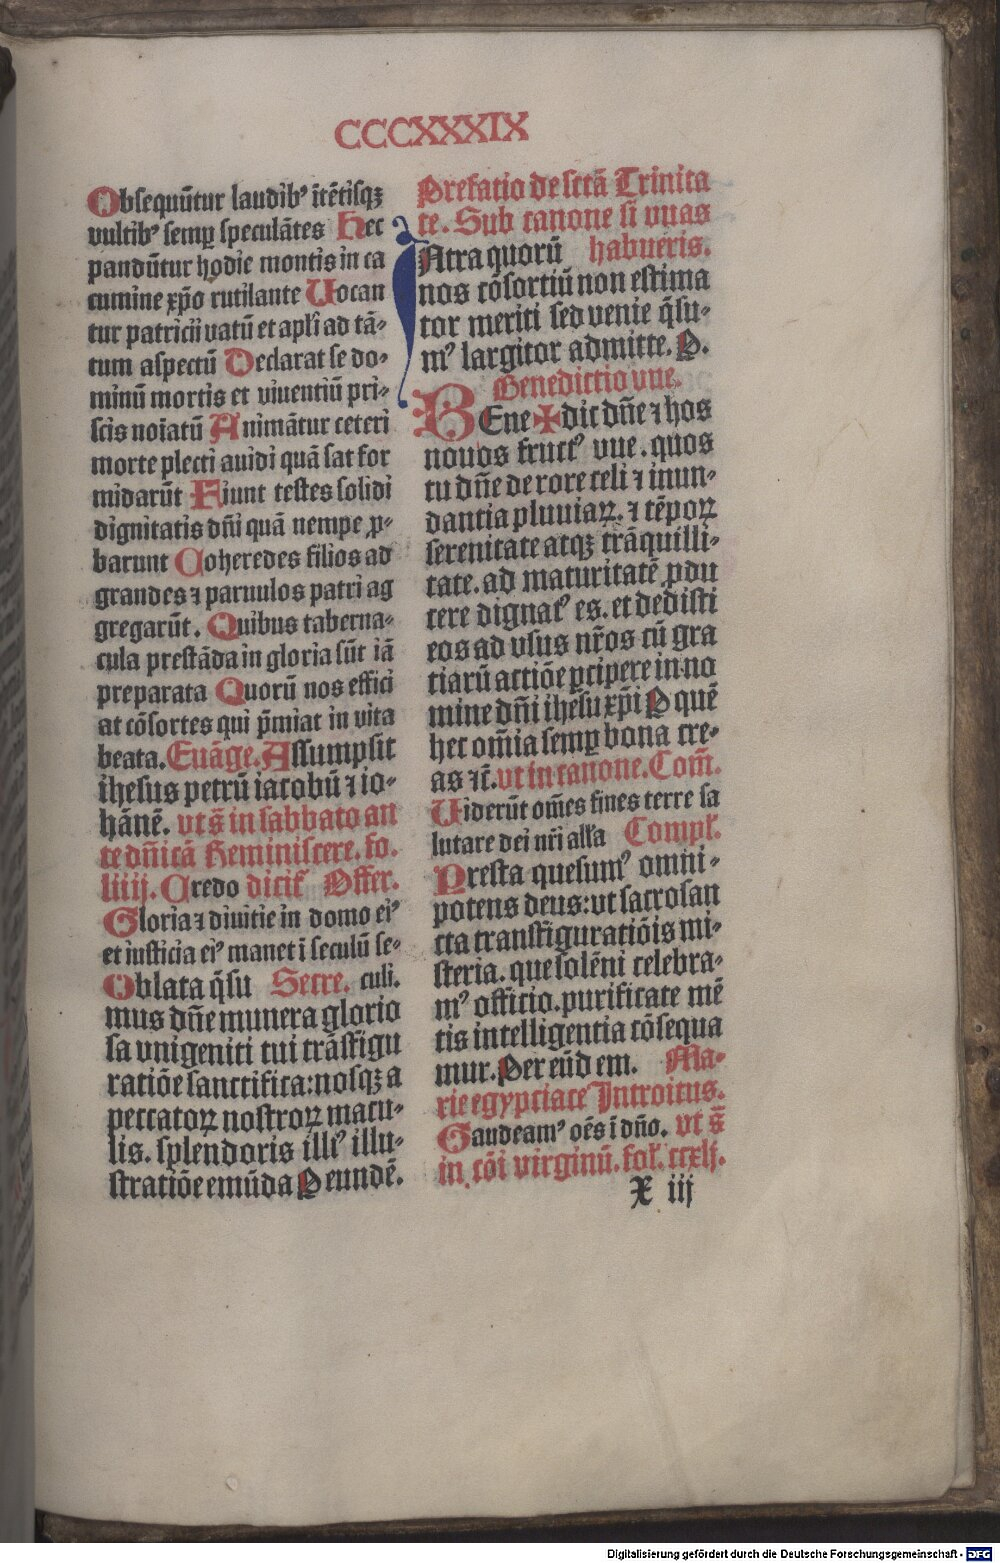 CCCXXXIX
Obsequūtur laudibꝰ ītētisqꝫ
vultibꝰ semꝑ speculātes Hec
pandūtur hodie montis in ca
cumine xp̄o rutilante Uocan
tur patricii vatū et apl̄i ad tā⸗
tum aspectū Declarat se do⸗
minū mortis et viuentiū pri⸗
scis noiatū Animātur ceteri
morte plecti auidi quā sat for
midarūt Fiunt testes solidi
dignitatis dn̄i quā nempe ꝓ⸗
barunt Coheredes filios ad
grandes ⁊ paruulos patri ag
gregarūt. Quibus taberna⸗
cula prestāda in gloria sūt iā
preparata Quorū nos effici
at cōsortes qui p̄miat in vita
beata. Euāge. Assumpsit
ihesus petrū iacobū ⁊ io⸗
hānē. vt s̄ in sabbato an
te dn̄icā Reminiscere. fo.
liiij. Credo dicit̄ Offer.
Gloria ⁊ diuitie in domo eiꝰ
et iusticia eiꝰ manet ī seculū se⸗
Oblata q̄su Secre. culi.
mus dn̄e munera glorio
sa vnigeniti tui trāsfigu
ratiōe sanctifica: nosqꝫ a
peccatoꝝ nostroꝝ macu⸗
lis. splendoris illiꝰ illu⸗
stratiōe emūda P eundē.
Prefatio de sctā Trinita
te. Sub canone si vuas
habueris.
INtra quorū
nos cōsortiū non estima
tor meriti sed venie q̄su⸗
mꝰ largitor admitte. P.
Benedictio vue.
BEne✠dic dn̄e ⁊ hos
nouos fructꝰ vue. quos
tu dn̄e de rore celi ⁊ inun⸗
dantia pluuiaꝝ. ⁊ tēpoꝝ
serenitate atqꝫ trāquilli⸗
tate. ad maturitatē ꝓdu
cere dignatꝰ es. et dedisti
eos ad vsus nr̄os cū gra
tiarū actiōe ꝑcipere in no
mine dn̄i ihesu xp̄i P quē
hec om̄ia semꝑ bona cre⸗
as ⁊c̄. vt in canone. Com̄.
Uiderūt om̄es fines terre sa
lutare dei nr̄i alla Compl̄.
Presta quesumꝰ omni⸗
potens deus: vt sacrosan
cta transfiguratiōis mi⸗
steria. que solēni celebra⸗
mꝰ officio. purificate mē
tis intelligentia cōsequa
mur. Per eūd em. Ma⸗
rie egyptiace Introitus.
Gaudeamꝰ oēs ī dn̄o. vt s̄
in cōi virginū. fol̄. ccxlj.
X iij
Digitalisierung gefördert durch die Deutsche Forschungsgemeinschaft - DFG